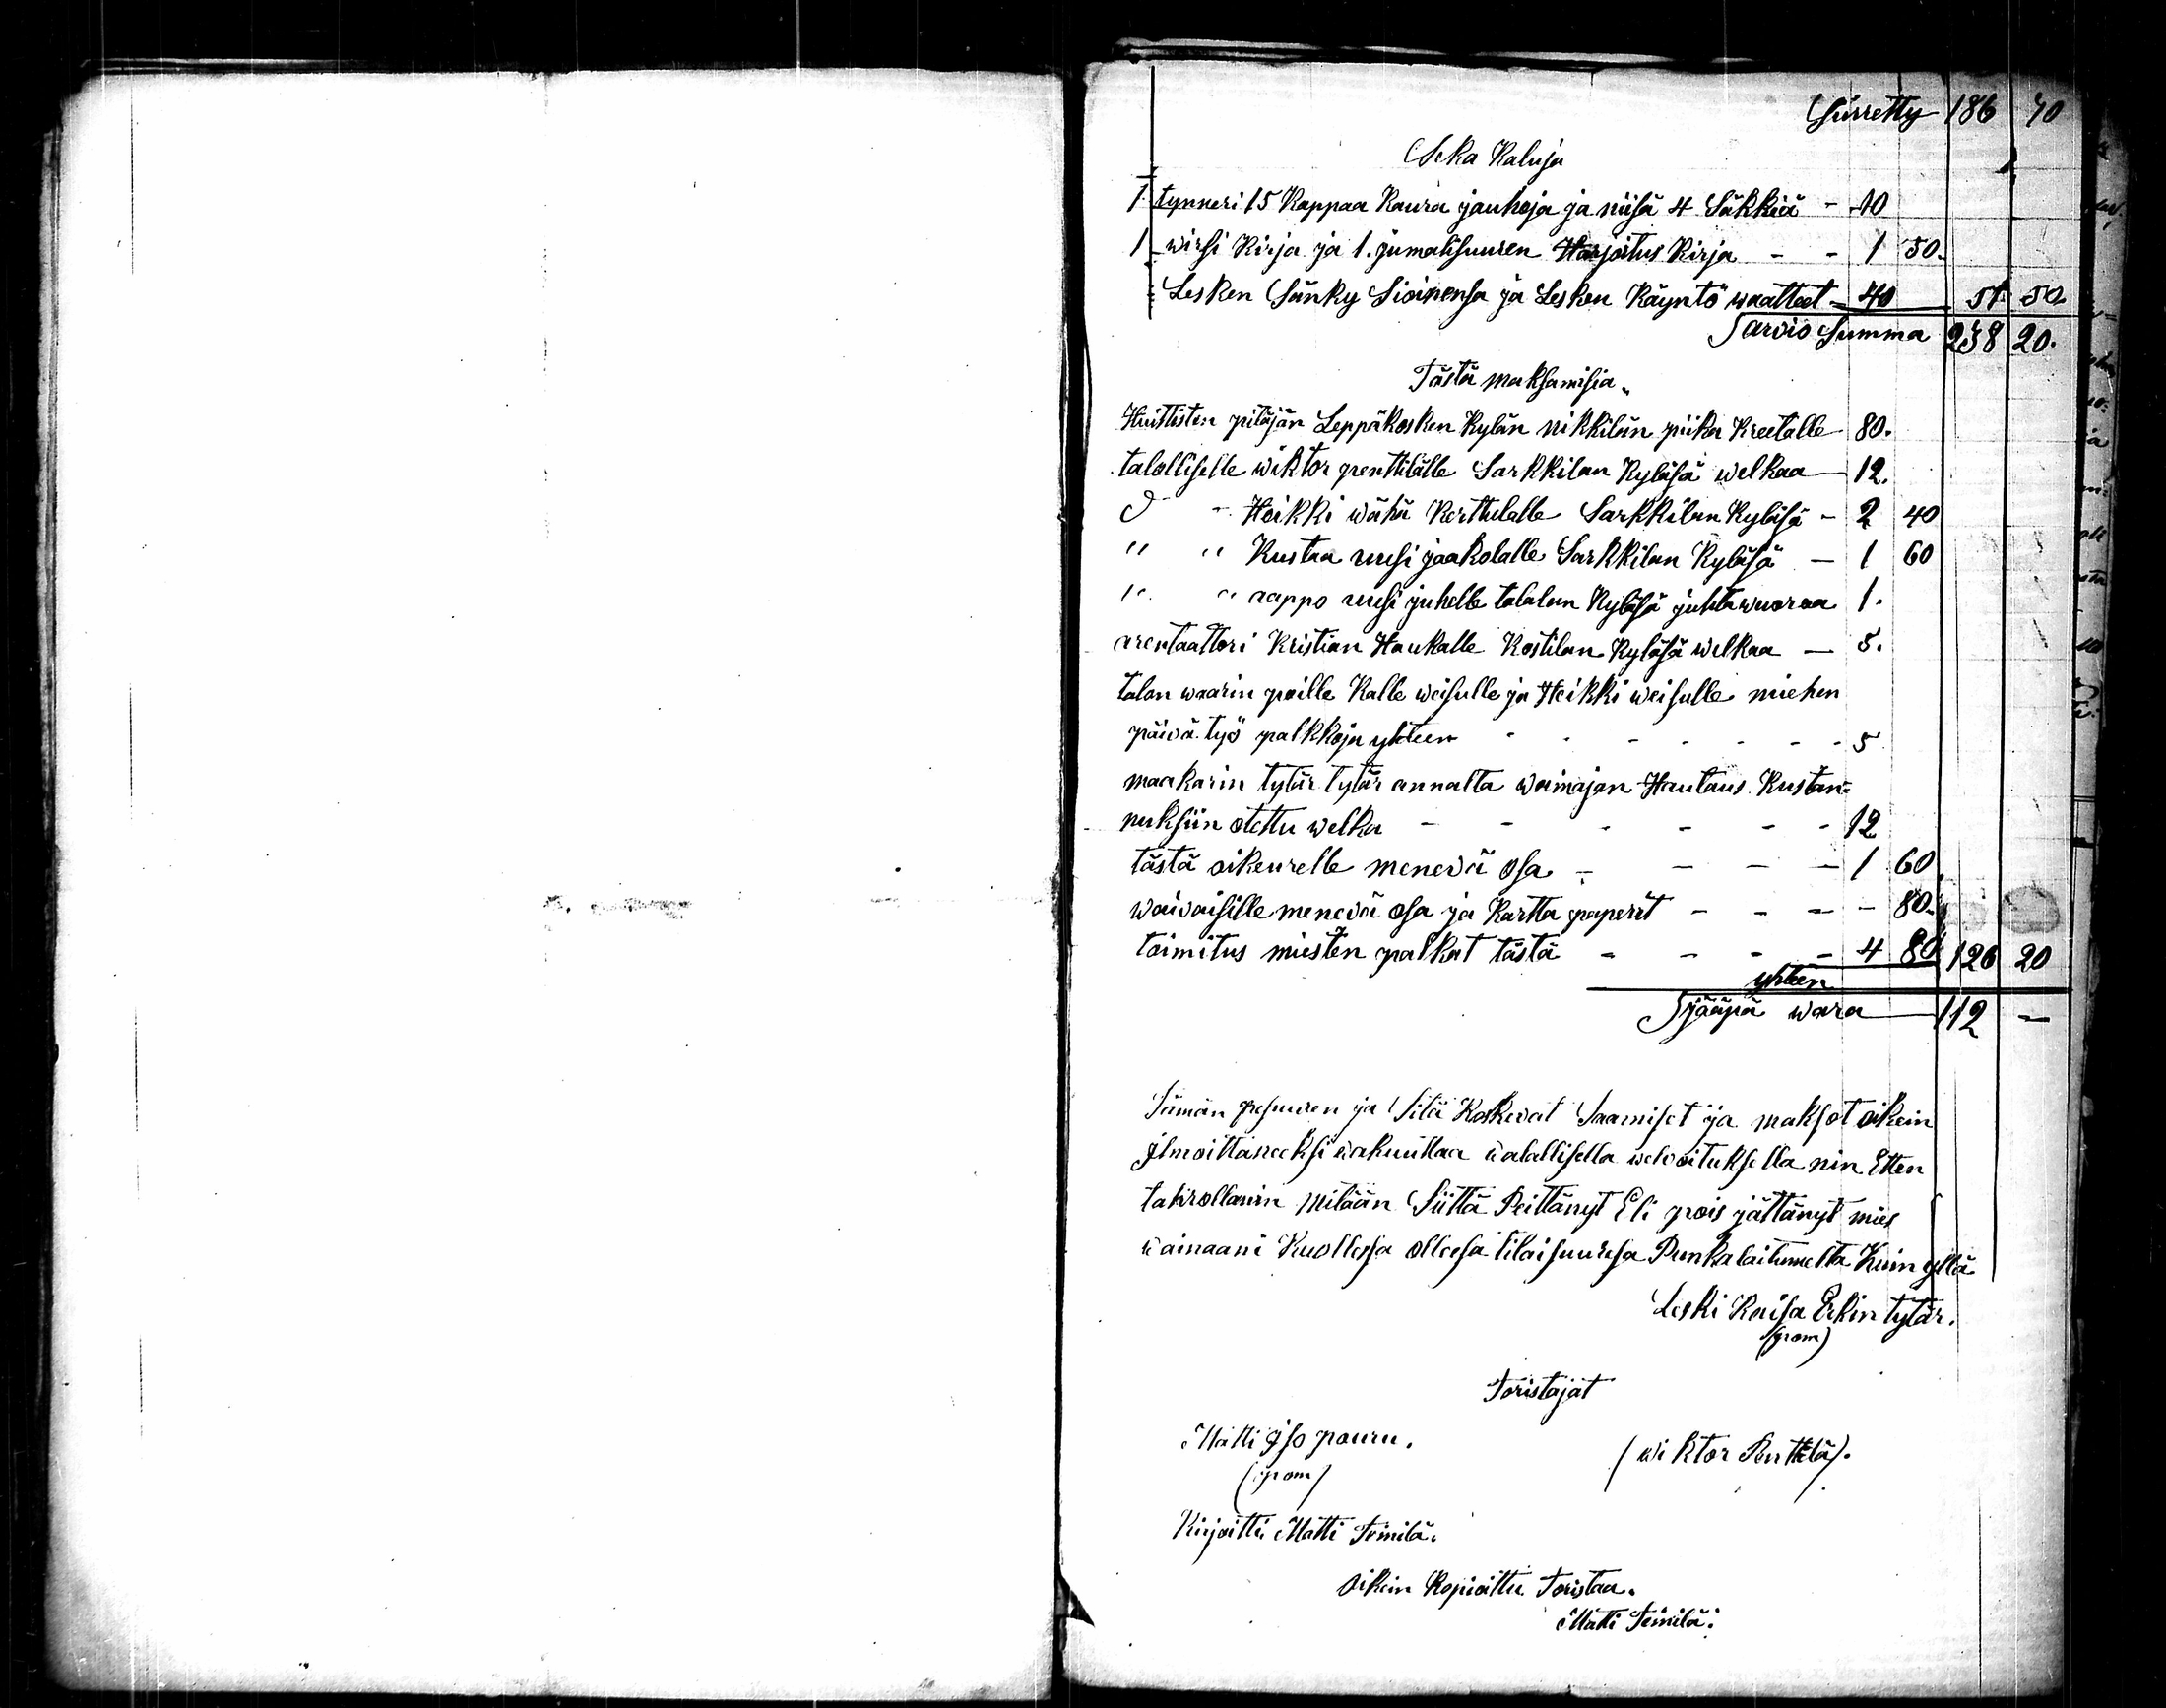 Siirretty 186 70
Seka Kaluja
1 tynneri 15 Kappaa Kaura jauhoja ja niisä 4 Säkkiä - 10
1 wirsi Kirja ja 1. jumalisuuren Harjoitus Kirja - - 1 50.
Lesken Sänky Sioinensa ja Lesken Käyntö waatteet - 40 51 50
Sarvio Summa 238 20.
Tästä maksamisia
Huittisten pitäjän Leppäkosken Kylän nikkilän piika Kreetalle 80.
talolliselle wiktor penttilälle Sarkkilan Kyläsä welkaa — 12.
d - Heikki wähä Kerttulalle Sarkkilan Kyläsä - 2 40
" " Kustaa uusi jaakolalle Sarkkilan Kyläsä — 1 60
" " aappo uusi juhelle talalan Kyläsä juhta wuoroa 1.
arentaattori Kristian Haukalle Kostilan Kyläsä welkaa — 5.
talon waarin poille Kalle weisulle ja Heikki weisulle miehen
päivä työ palkkoja yhteen - - - - - - 5
maakarin tytär tytär annalta waimajan Hautaus Kustan=
nuksiin otettu welka - - - - - - 12
tästä oikeurelle menevä osa - - - - 1 60
waivaisille menevä osa ja Kartta paperit - - - - 80.
toimitus miesten palkat tästä - - - - 4 80 126 20
yhteen
Sjääpä wara — 112 —
Tämän pesuuren ja Sitä Koskevat Saamiset ja maksot oikein
ilmoittaneeksi wakuuttaa walallisella welvoituksella nin Etten
tahrollanin mitään Siittä Peittänyt Eli pois jättänyt mies
wainaani Kuollessa olleesa tilaisuuresa Punkalaitumelta Kuin yllä
Leski Kaisa Erkin tytär.
(pom)
Toristajat
Matti iso pouru. (wiktor Penttilä).
(pom)
Kirjoitti Matti Seinilä.
Oikein Kopioittu Toristaa.
Matti Seinilä.